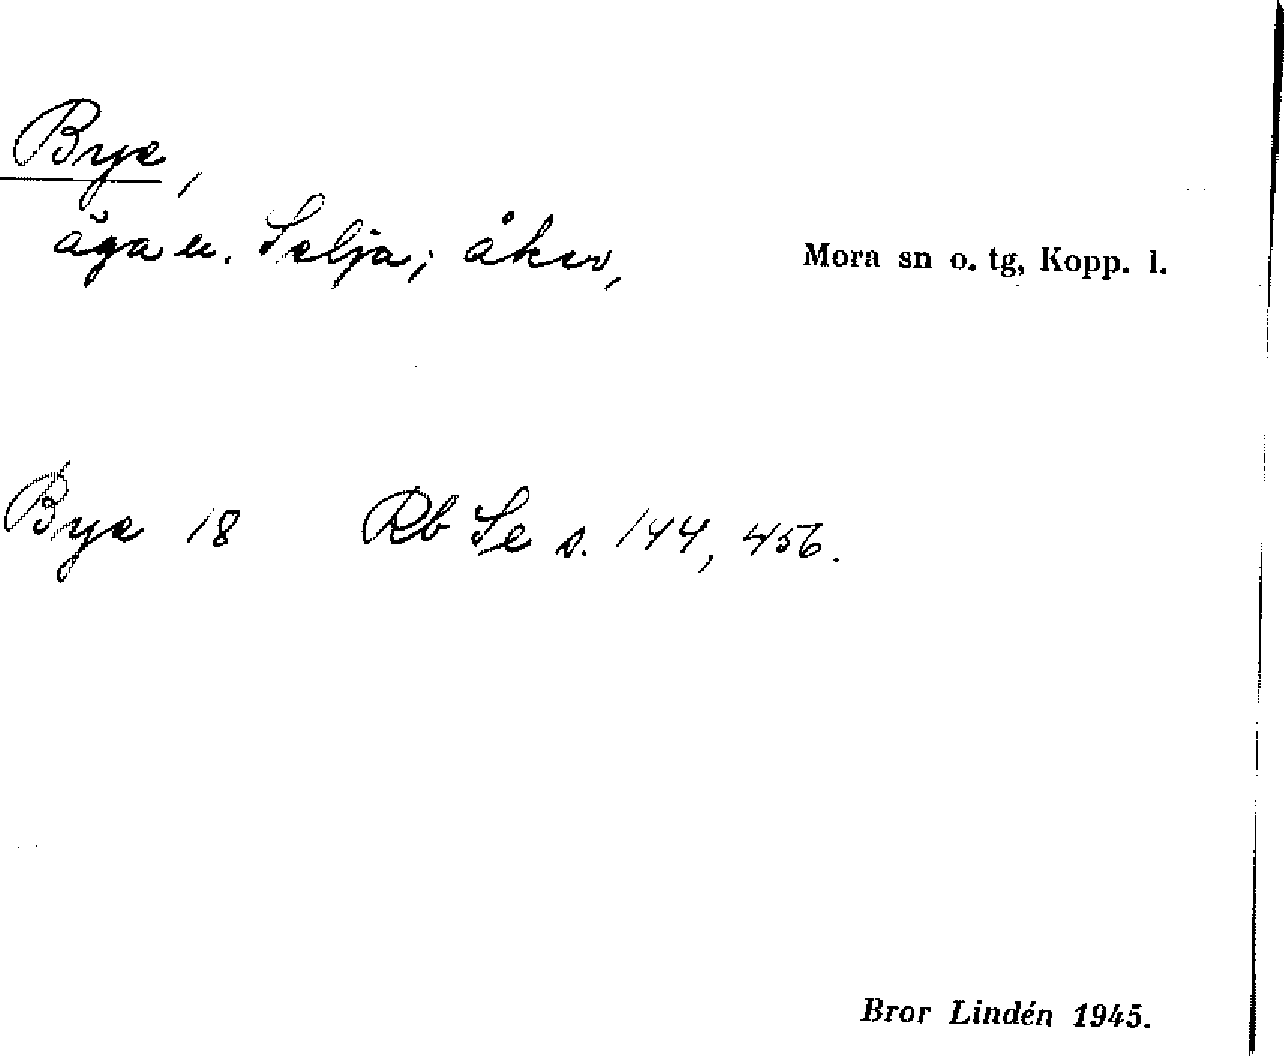 Bye,
äga u. Selja; åker, Mora sn o. tg, Kopp. l.
Bye 18 Rb Se s. 144, 456.
Bror Lindén 1945.